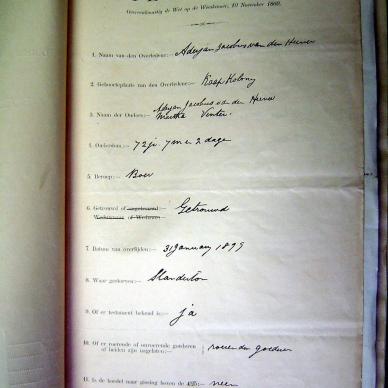 Overeenkomstig de Wet op de Weeskamer, 10 November 1869.
1. Naam van den Overledene:— Adryan Jacobus van den Heever
2. Geboorteplaats van den Overledene:— Kaap Kolony
3. Naam der Ouders:— Adryan Jacobus van den Heever
Martha Venter
4. Ouderdom:— 72 jr. 7 m en 2 dage
5. Beroep:— Boer
6. Getrouwd of ongetrouwd:— Getrouwd
Weduwnaar of Weduwe:—
7. Datum van overlijden:— 31 January 1899
8. Waar gestorven:— Standerton
9. Of er testament bekend is:— ja
10. Of er roerende of onroerende goederen
of beiden zijn nagelaten:— roerende goedere
11. Is de boedel naar gissing boven de neen